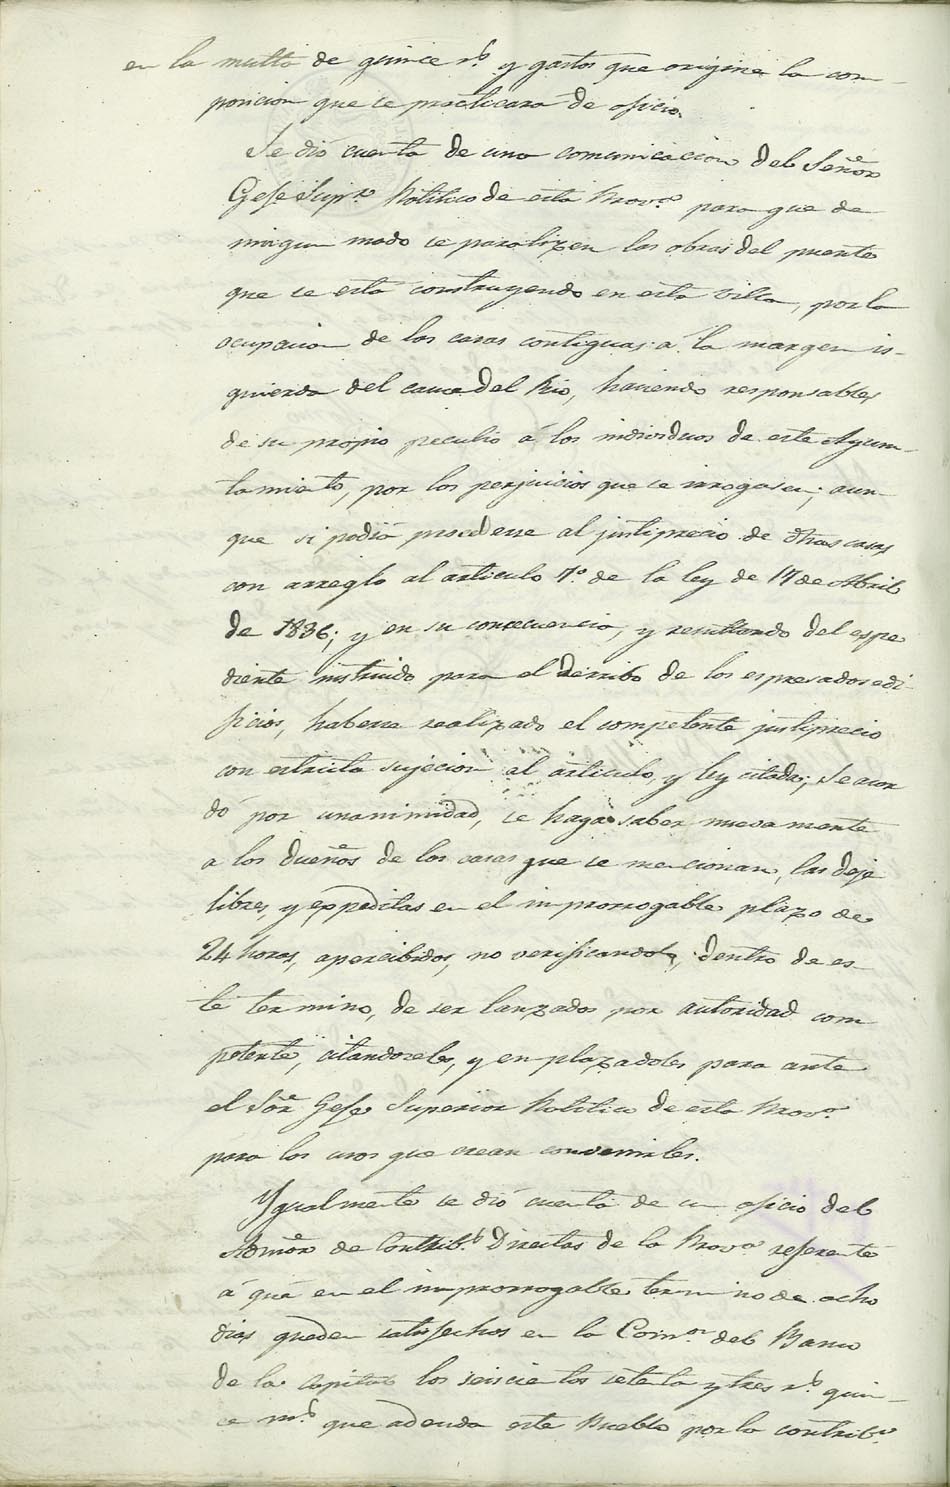 en la multa de quince r.s y gastos que origine la com-
posicion que se practicará de oficio.
Se dió cuenta de una comunicacion del Señor
Gefe Sup.r Politico de esta Prov.a para que de
ningun modo se paralizen las obras del puente
que se está construyendo en esta villa, por la
ocupacion de las casas contiguas á la margen is-
quierda del cauce del Rio, haciendo responsables
de su propio peculio á los individuos de este Ayun-
tamiento, por los perjuicios que se irrogasen; aun-
que si podia procederse al justiprecio de dhas casas
con arreglo al articulo 7.o de la ley de 17 de Abril
de 1836; y en su consecuencia, y resultando del espe
diente instruido para el derribo de los espresados edi-
ficios, haberse realizado el competente justiprecio
con estricta sujecion al articulo, y ley citada; Se acor
dó por unanimidad, se haga saber nuevamente
a los dueños de las casas que se mencionan, las deje
libres, y expeditas en el improrrogable plazo de
24 horas, apercibidos, no verificandolo, dentro de es-
te termino, de ser lanzados por autoridad com
petente, citandoseles, y emplazadoles para ante
el Sõr Gefe Superior Politico de esta Prov.a
para los usos que crean convenirles.
Ygualmente se dió cuenta de un oficio del
Admõr de Contrib.s Directas de la Prov.a referente
á que en el improrrogable termino de ocho
dias queden satisfechos en la Com.on del Banco
de la capital los seiscientos setenta y tres r.s quin-
ce m.s que adeuda este Pueblo por la contrib.n